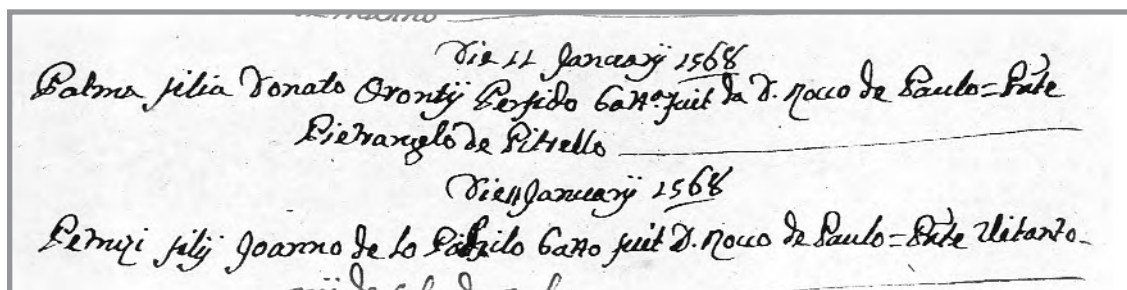 Die 11 Januarij 1568
Palma filia Donato Orontij Perfido batt.º fuit da D. Roccо de Paulo = Pnte
Pietrangelo de Pitrello
Die 11 Januarij 1568
Petruzi filij Joanno de lo Batto fuit D. Rocco de Paulo = Pnte